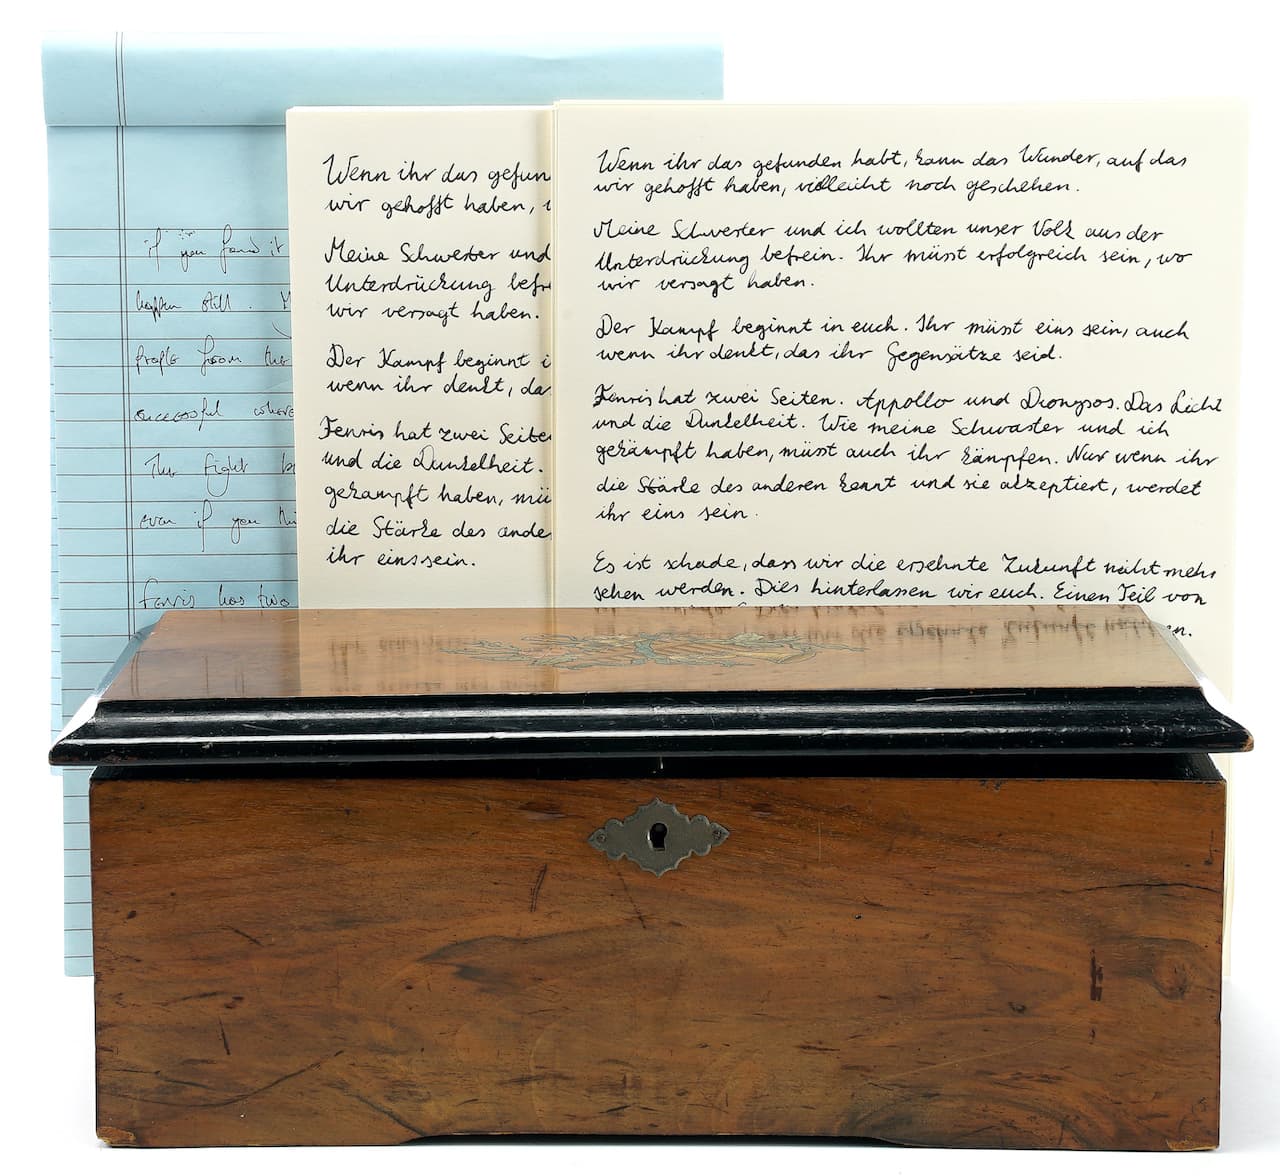 if you found it
happen still.
people from the
successful where
The fight
even if you
Fenris has two
Wenn ihr das gefun
wir gehofft haben,
Meine Schwester und
Unterdrückung befre
wir versagt haben.
Der Kampf beginnt i
wenn ihr denkt, das
Fenris hat zwei Seite
und die Dunkelheit.
gekampft haben, mü
die Stärke des ande
ihr eins sein.
Wenn ihr das gefunden habt, kann das Wunder, auf das
wir gehofft haben, vielleicht noch geschehen.
Meine Schwester und ich wollten unser Volk aus der
Unterdrückung befrein. Ihr müsst erfolgreich sein, wo
wir versagt haben.
Der Kampf beginnt in euch. Ihr müsst eins sein, auch
wenn ihr denkt, das ihr Gegensätze seid.
Fenris hat zwei Seiten. Appollo und Dionysos. Das Licht
und die Dunkelheit. Wie meine Schwaster und ich
gekämpft haben, müsst auch ihr kämpfen. Nur wenn ihr
die Stärke des anderen kennt und sie akzeptiert, werdet
ihr eins sein.
Es ist schade, dass wir die ersehnte Zukunft nicht mehr
sehen werden. Dies hinterlassen wir euch. Einen Teil von